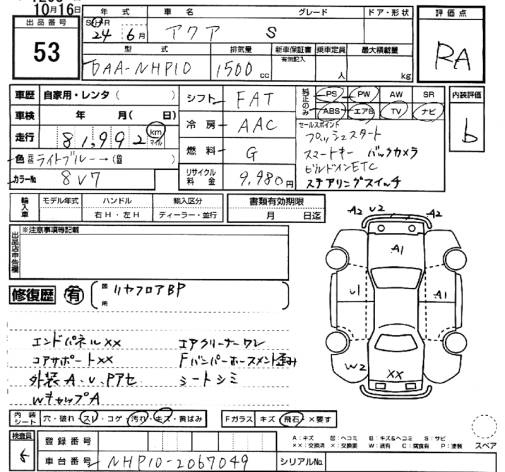 10月16日
出品番号
53
年式 車名 グレード ドア・形状
24年 6月 アクア S
型式 排気量 新車保証書 乗車定員 最大積載量
有・別記入
DAA-NHP10 1500cc 人 kg
評価点
RA
車歴 自家用・レンタ( )
車検 年 月( 日)
走行 81,992 km マイル
色 ライトブルー→(
カラーNo 8V7
シフト FAT
冷房 AAC
燃料 G
リサイクル料金 9,980円
純正のみ
PS PW AW SR
ABS エアB TV ナビ
セールスポイント
プッシュスタート
スマートキー バックカメラ
ビルドインETC
ステアリングスイッチ
内装評価
b
輸入車 モデル年式 ハンドル 輸入区分
右H・左H ディーラー・並行
書類有効期限
月 日迄
出品店申告欄
※注意事項等記載
修復歴 有
箇所 リヤフロアBP
エンドパネルXX エアクリーナーワレ
コアサポートXX Fバンパーホースメント歪み
外装A・U・Pアセ シートシミ
WキャップA
A2 U2 A2
A1
U1 A1
W2
XX
内装シート 穴・破れ スレ・コゲ 汚れ・キズ・黄ばみ
Fガラス キズ 飛石・×要す
検査員
登録番号
車台番号 NHP10-2067049
シリアルNo.
A:キズ U:ヘコミ B:キズ&ヘコミ S:サビ
××:交換済 ×:交換要 W:波有 C:腐食有 P:塗装
スペア